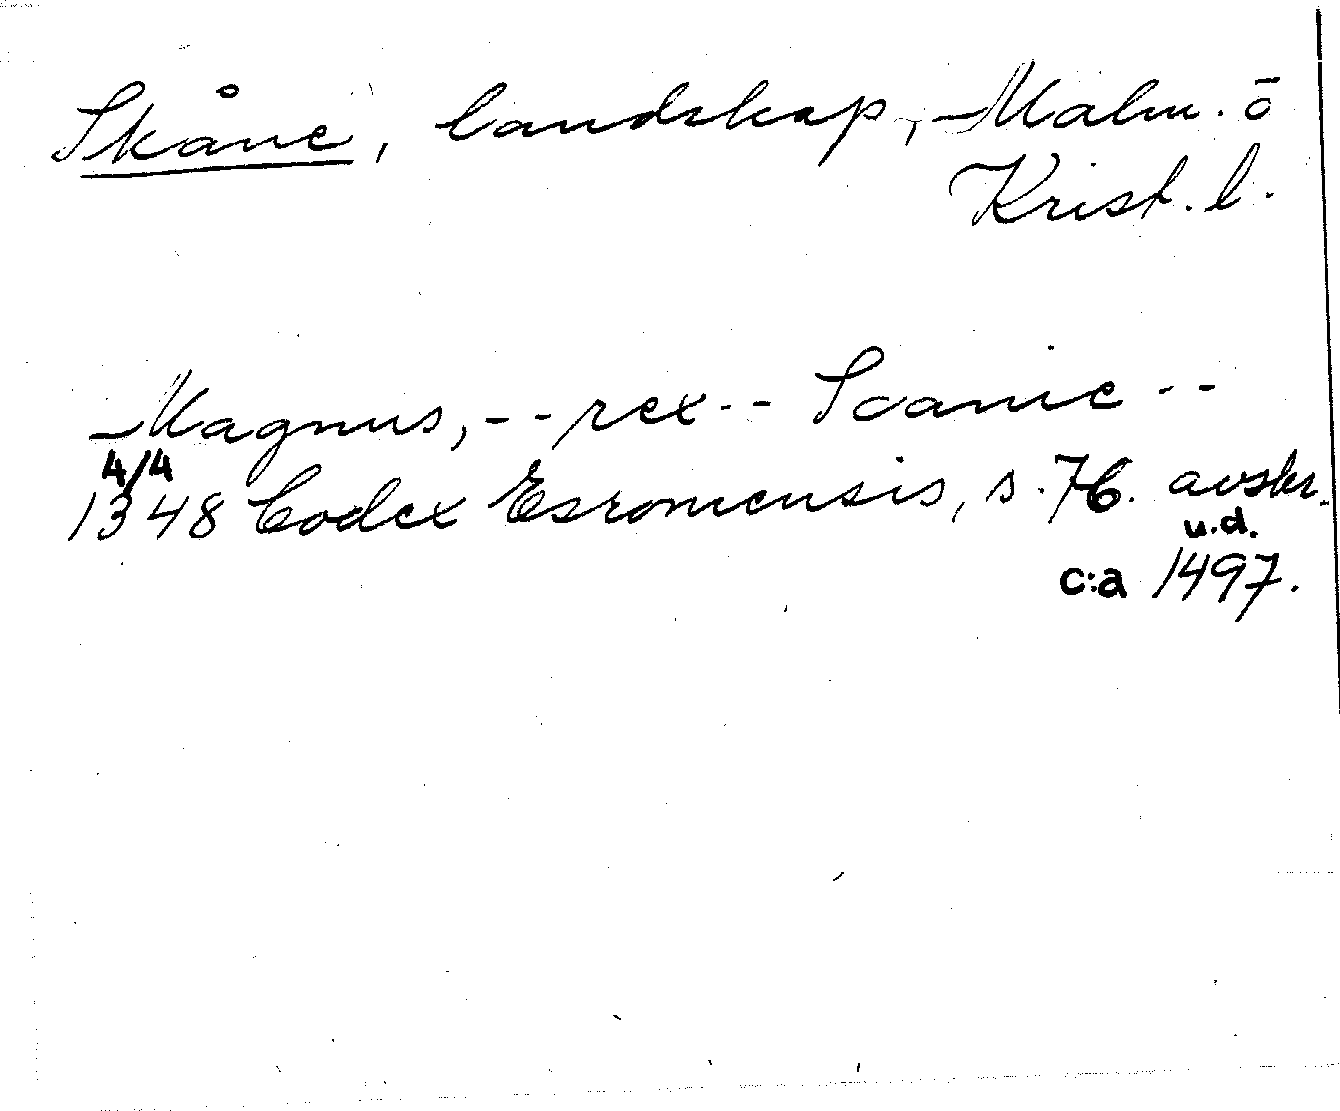 Skåne, landskap, Malm. ō
Krist. l.
Magnus, -- rex -- Scanie --
4/4
1348 Codex Esromensis, s. 76. avskr.
u.d.
c:a 1497.